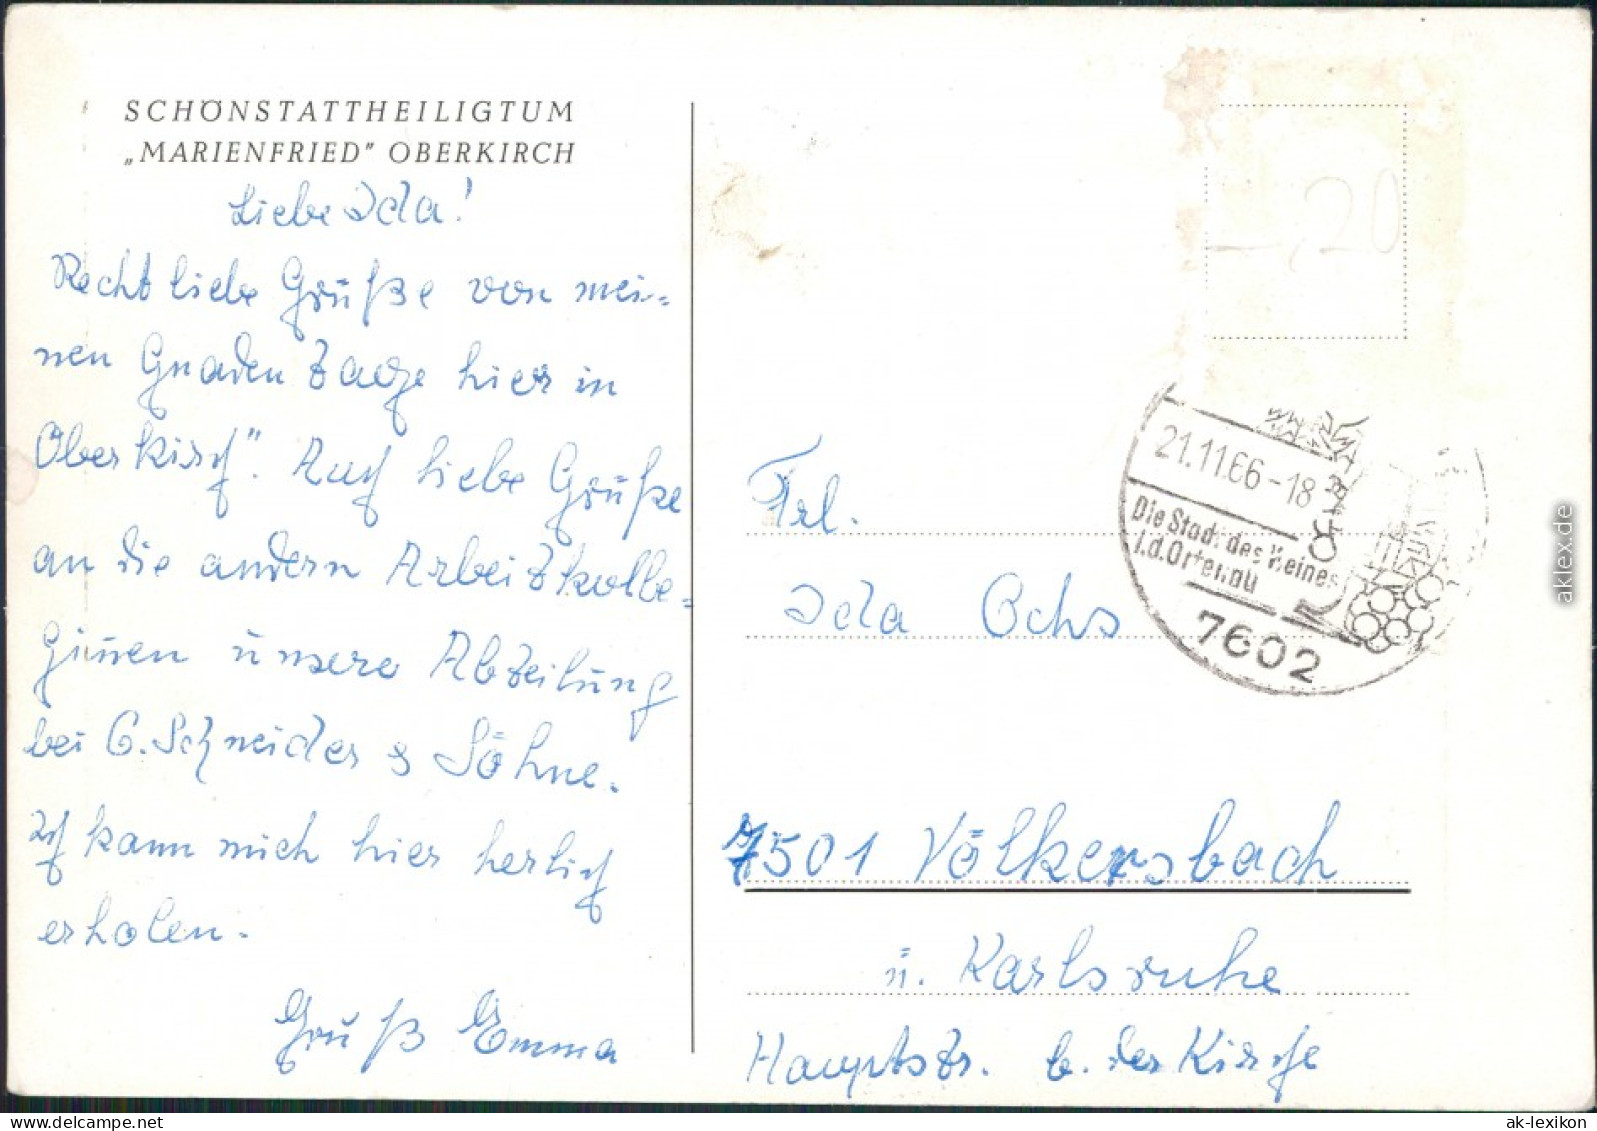 SCHÖNSTATTHEILIGTUM
„MARIENFRIED" OBERKIRCH
Liebe Ida!
Recht liebe Grüße von mei-
nen Gnadentage hier in
Oberkirch". Auch liebe Grüße
an die andern Arbeitskolle-
ginnen unsere Abteilung
bei G. Schneider & Söhne.
Ich kann mich hier herlich
erholen.
Gruß Emma
-,20
21.11.66-18
Die Stadt des Weines
i.d. Ortenau
7602
Frl.
Ida Ochs
7501 Völkersbach
ü. Karlsruhe
Hauptstr. b. der Kirche
aklex.de
ak-lexikon